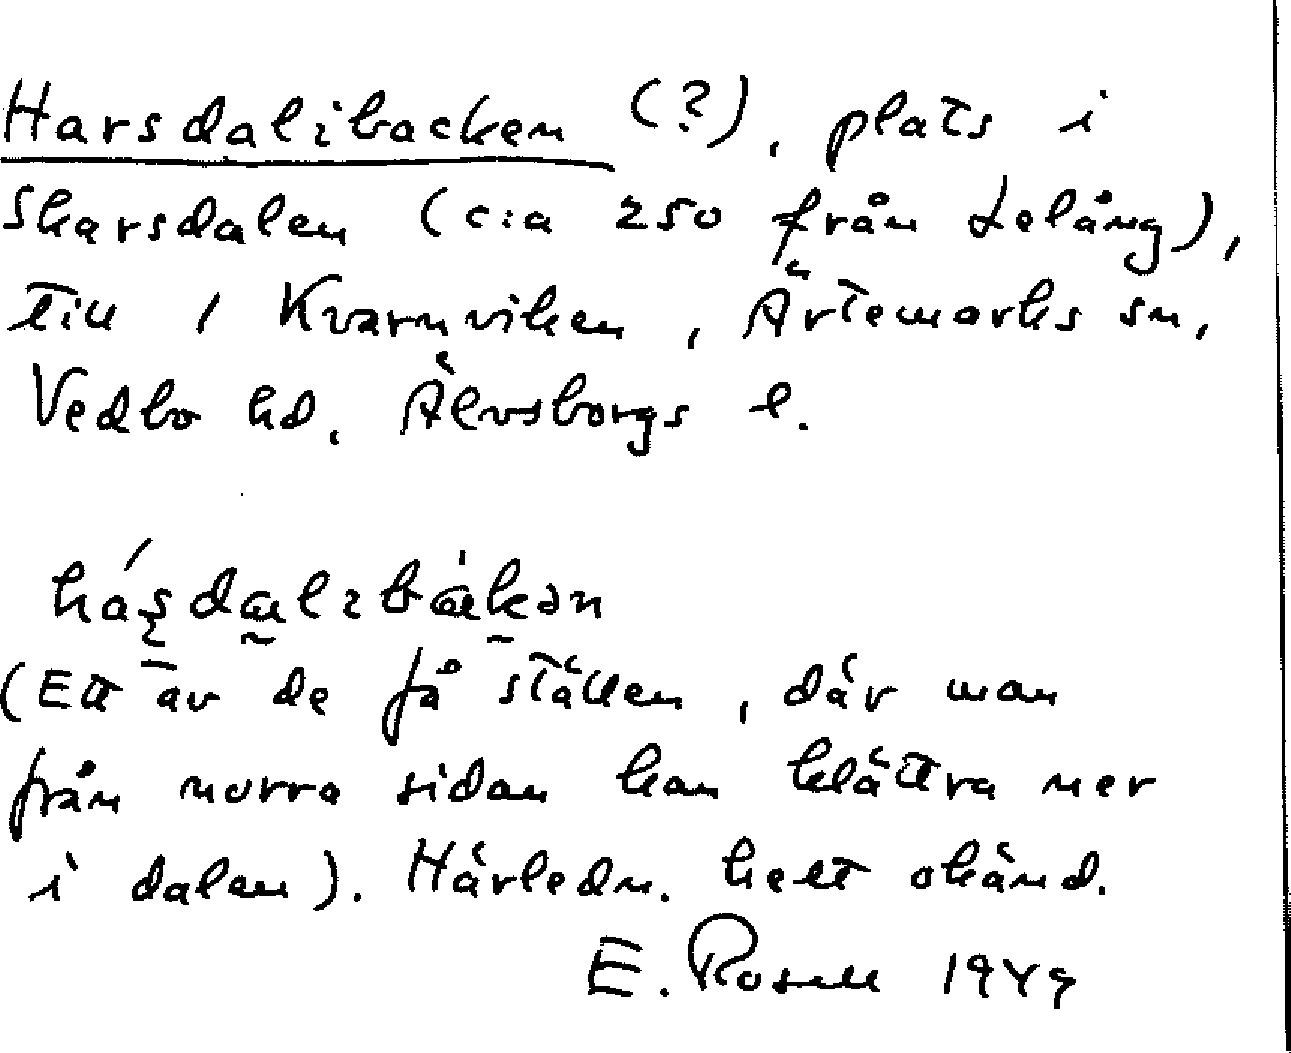 Harsdalibacken (?), plats i
Skarsdalen (c:a 250 från Lelång),
till 1 Kvarnviken, Ärtemarks sn,
Vedbo hd, Älvsborgs l.
(Ett av de få ställen, där man
från norra sidan kan klättra ner
i dalen). Härledn. helt okänd.
E. Rosell 1949